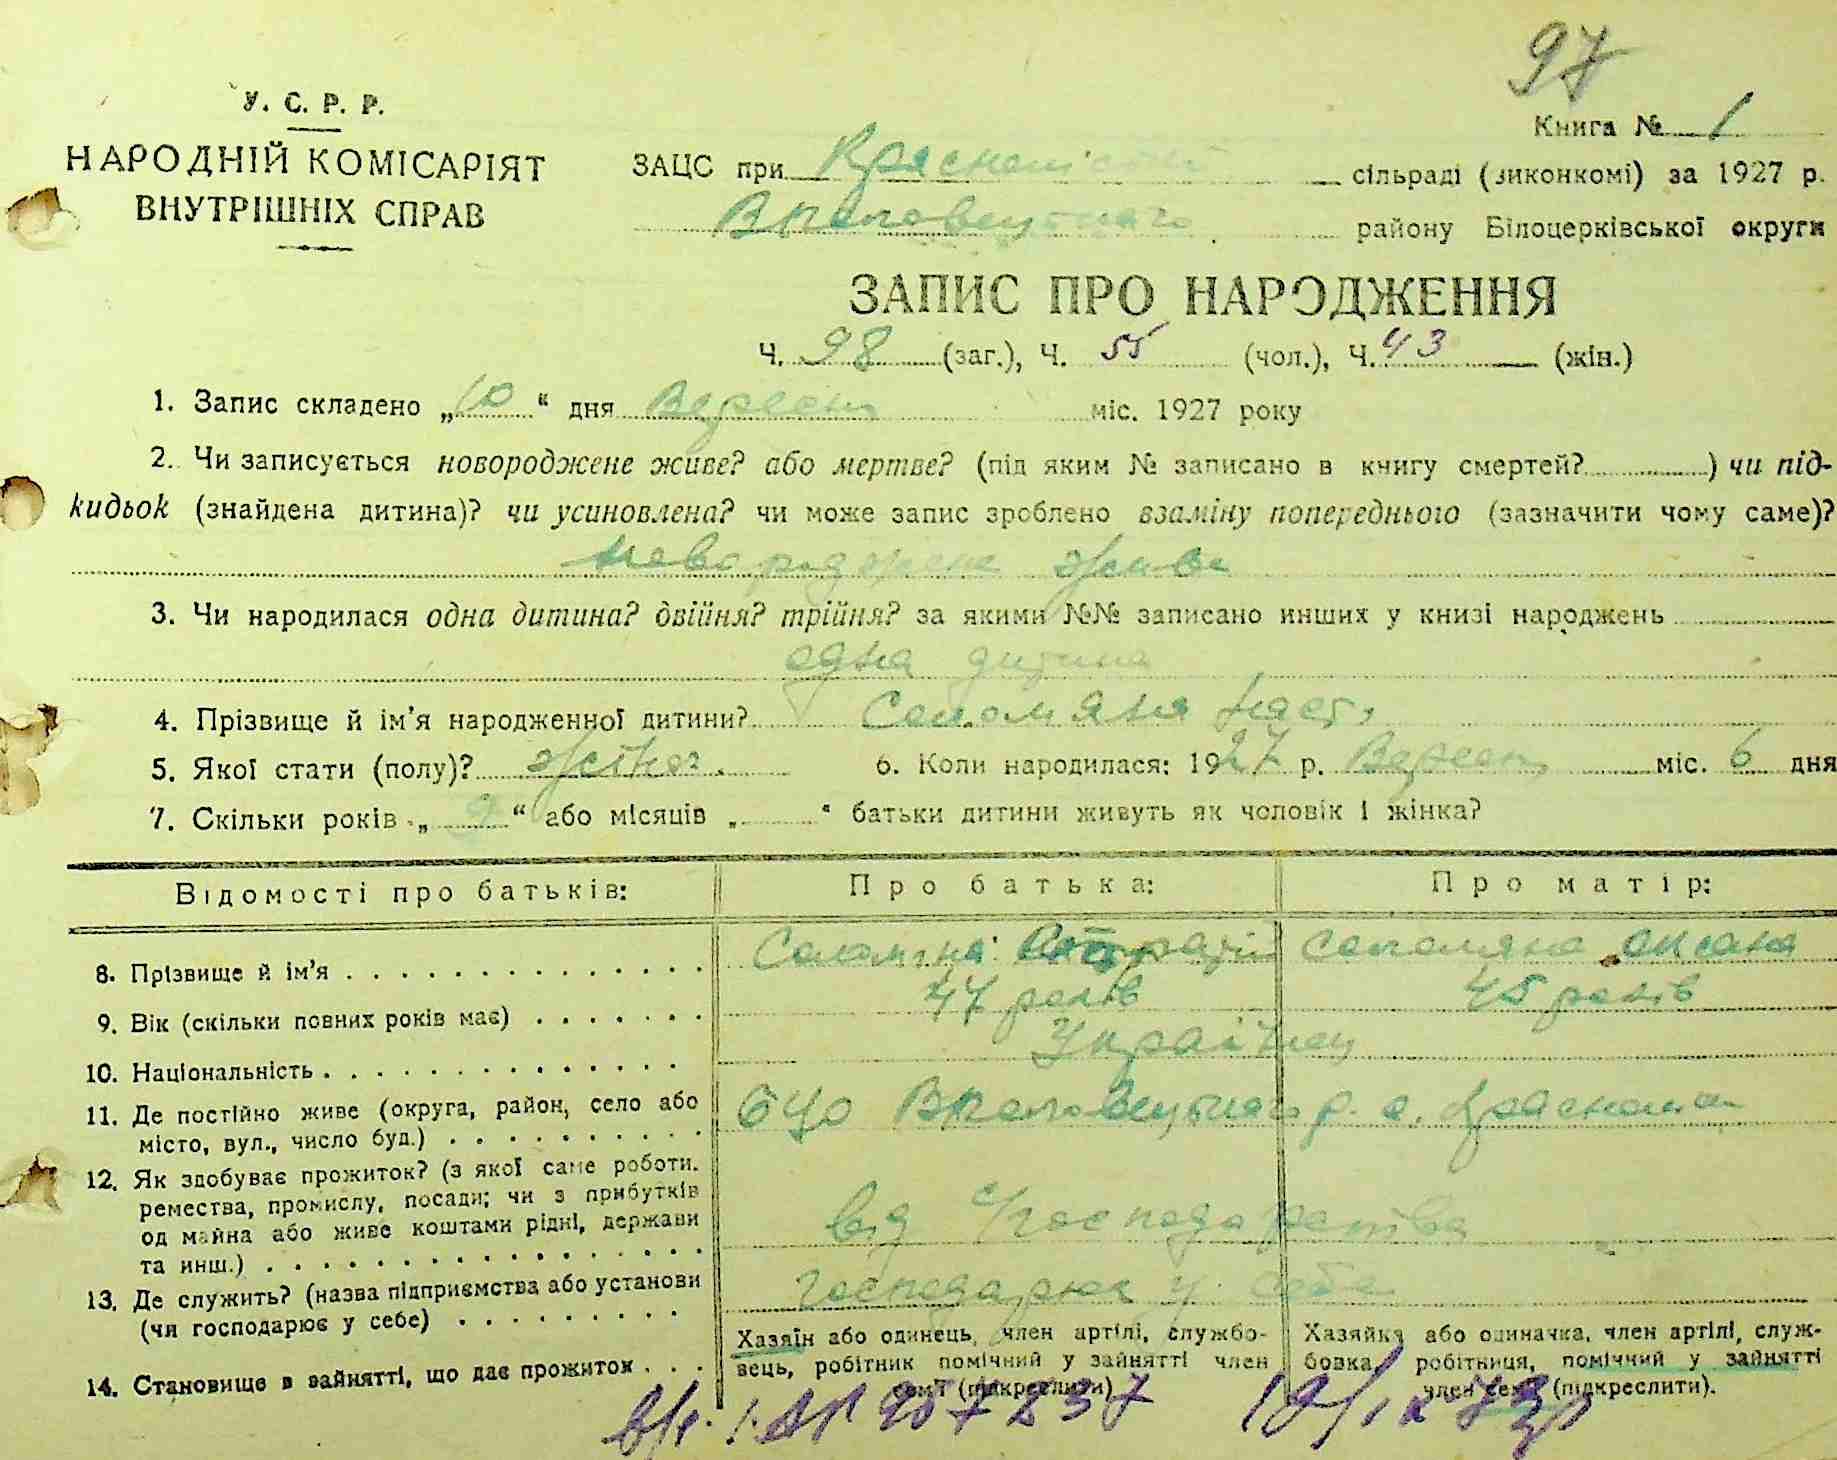 97
У. С. Р. Р.
Книга № 1
НАРОДНІЙ КОМІСАРІЯТ
ВНУТРІШНІХ СПРАВ
ЗАЦС при сільраді (виконкомі) за 1927 р.
району Білоцерківської округи
ЗАПИС ПРО НАРОДЖЕННЯ
Ч. 98 (заг.), Ч. 55 (чол.), Ч. 43 (жін.)
1. Запис складено „10“ дня Вересня міс. 1927 року
2. Чи записується новороджене живе? або мертве? (під яким № записано в книгу смертей? ) чи під-
кидьок (знайдена дитина)? чи усиновлена? чи може запис зроблено взаміну попереднього (зазначити чому саме)?
новороджене живе
3. Чи народилася одна дитина? двійня? трійня? за якими №№ записано инших у книзі народжень
одна дитина
4. Прізвище й ім’я народженної дитини?
5. Якої стати (полу)? жіноч. 6. Коли народилася: 1927 р. Вересня міс. 6 дня
7. Скільки років „9“ або місяців „ “ батьки дитини живуть як чоловік і жінка?
Відомості про батьків: Про батька: Про матір:
8. Прізвище й ім’я Оксана
9. Вік (скільки повних років має) 47 років 45 років
10. Національність Українці
11. Де постійно живе (округа, район, село або
місто, вул., число буд.) БЦо р. с.
12. Як здобуває прожиток? (з якої саме роботи.
ремества, промислу, посади; чи з прибутків
од майна або живе коштами рідні, держави
та инш.) від с/господарства
13. Де служить? (назва підприємства або установи
(чи господарює у себе) господарює у себе
14. Становище в зайнятті, що дає прожиток
Хазяїн або одинець, член артілі, службо-
вець, робітник помічний у зайнятті член
сем’ї (підкреслити)
Хазяйка або одиначка, член артілі, служ-
бовка, робітниця, помічний у зайнятті
член сем’ї (підкреслити).